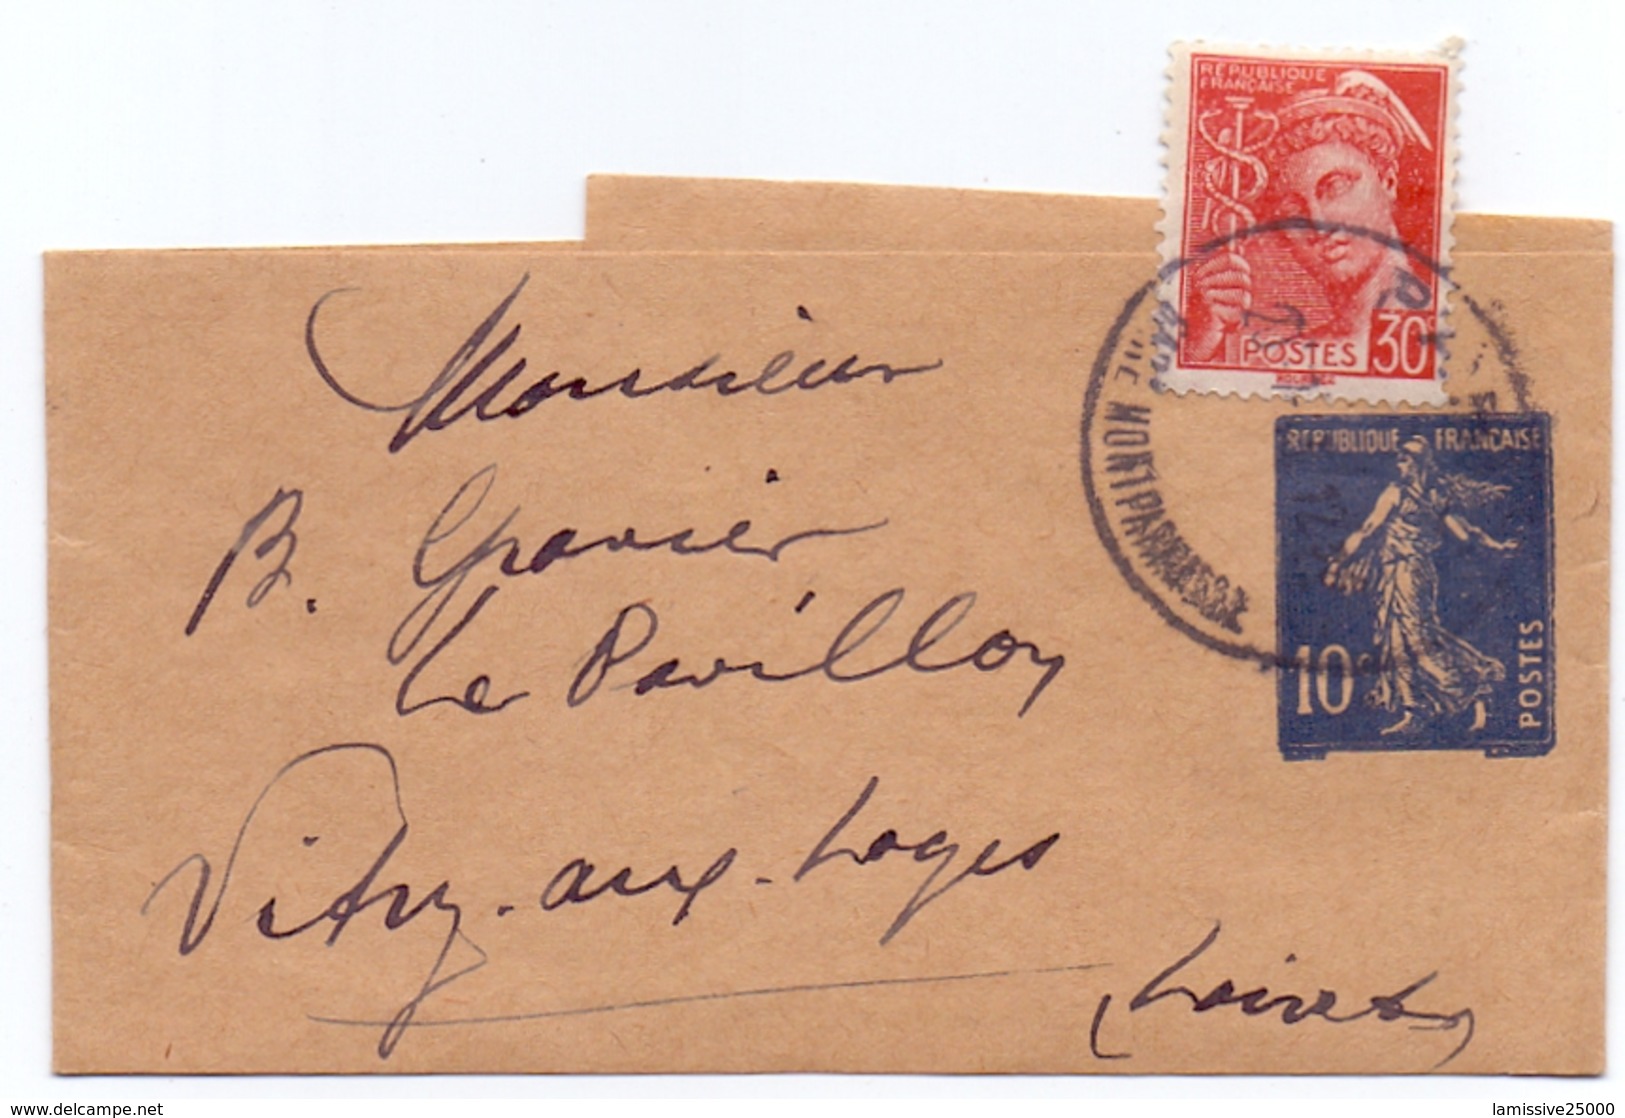 RÉPUBLIQUE
FRANÇAISE
POSTES 30c
MONTPARNASSE
RÉPUBLIQUE FRANÇAISE
10c
POSTES
Monsieur
B. Gravier
Le Pavillon
Vitry-aux-Loges
(Loiret)
www.delcampe.net
lamissive25000